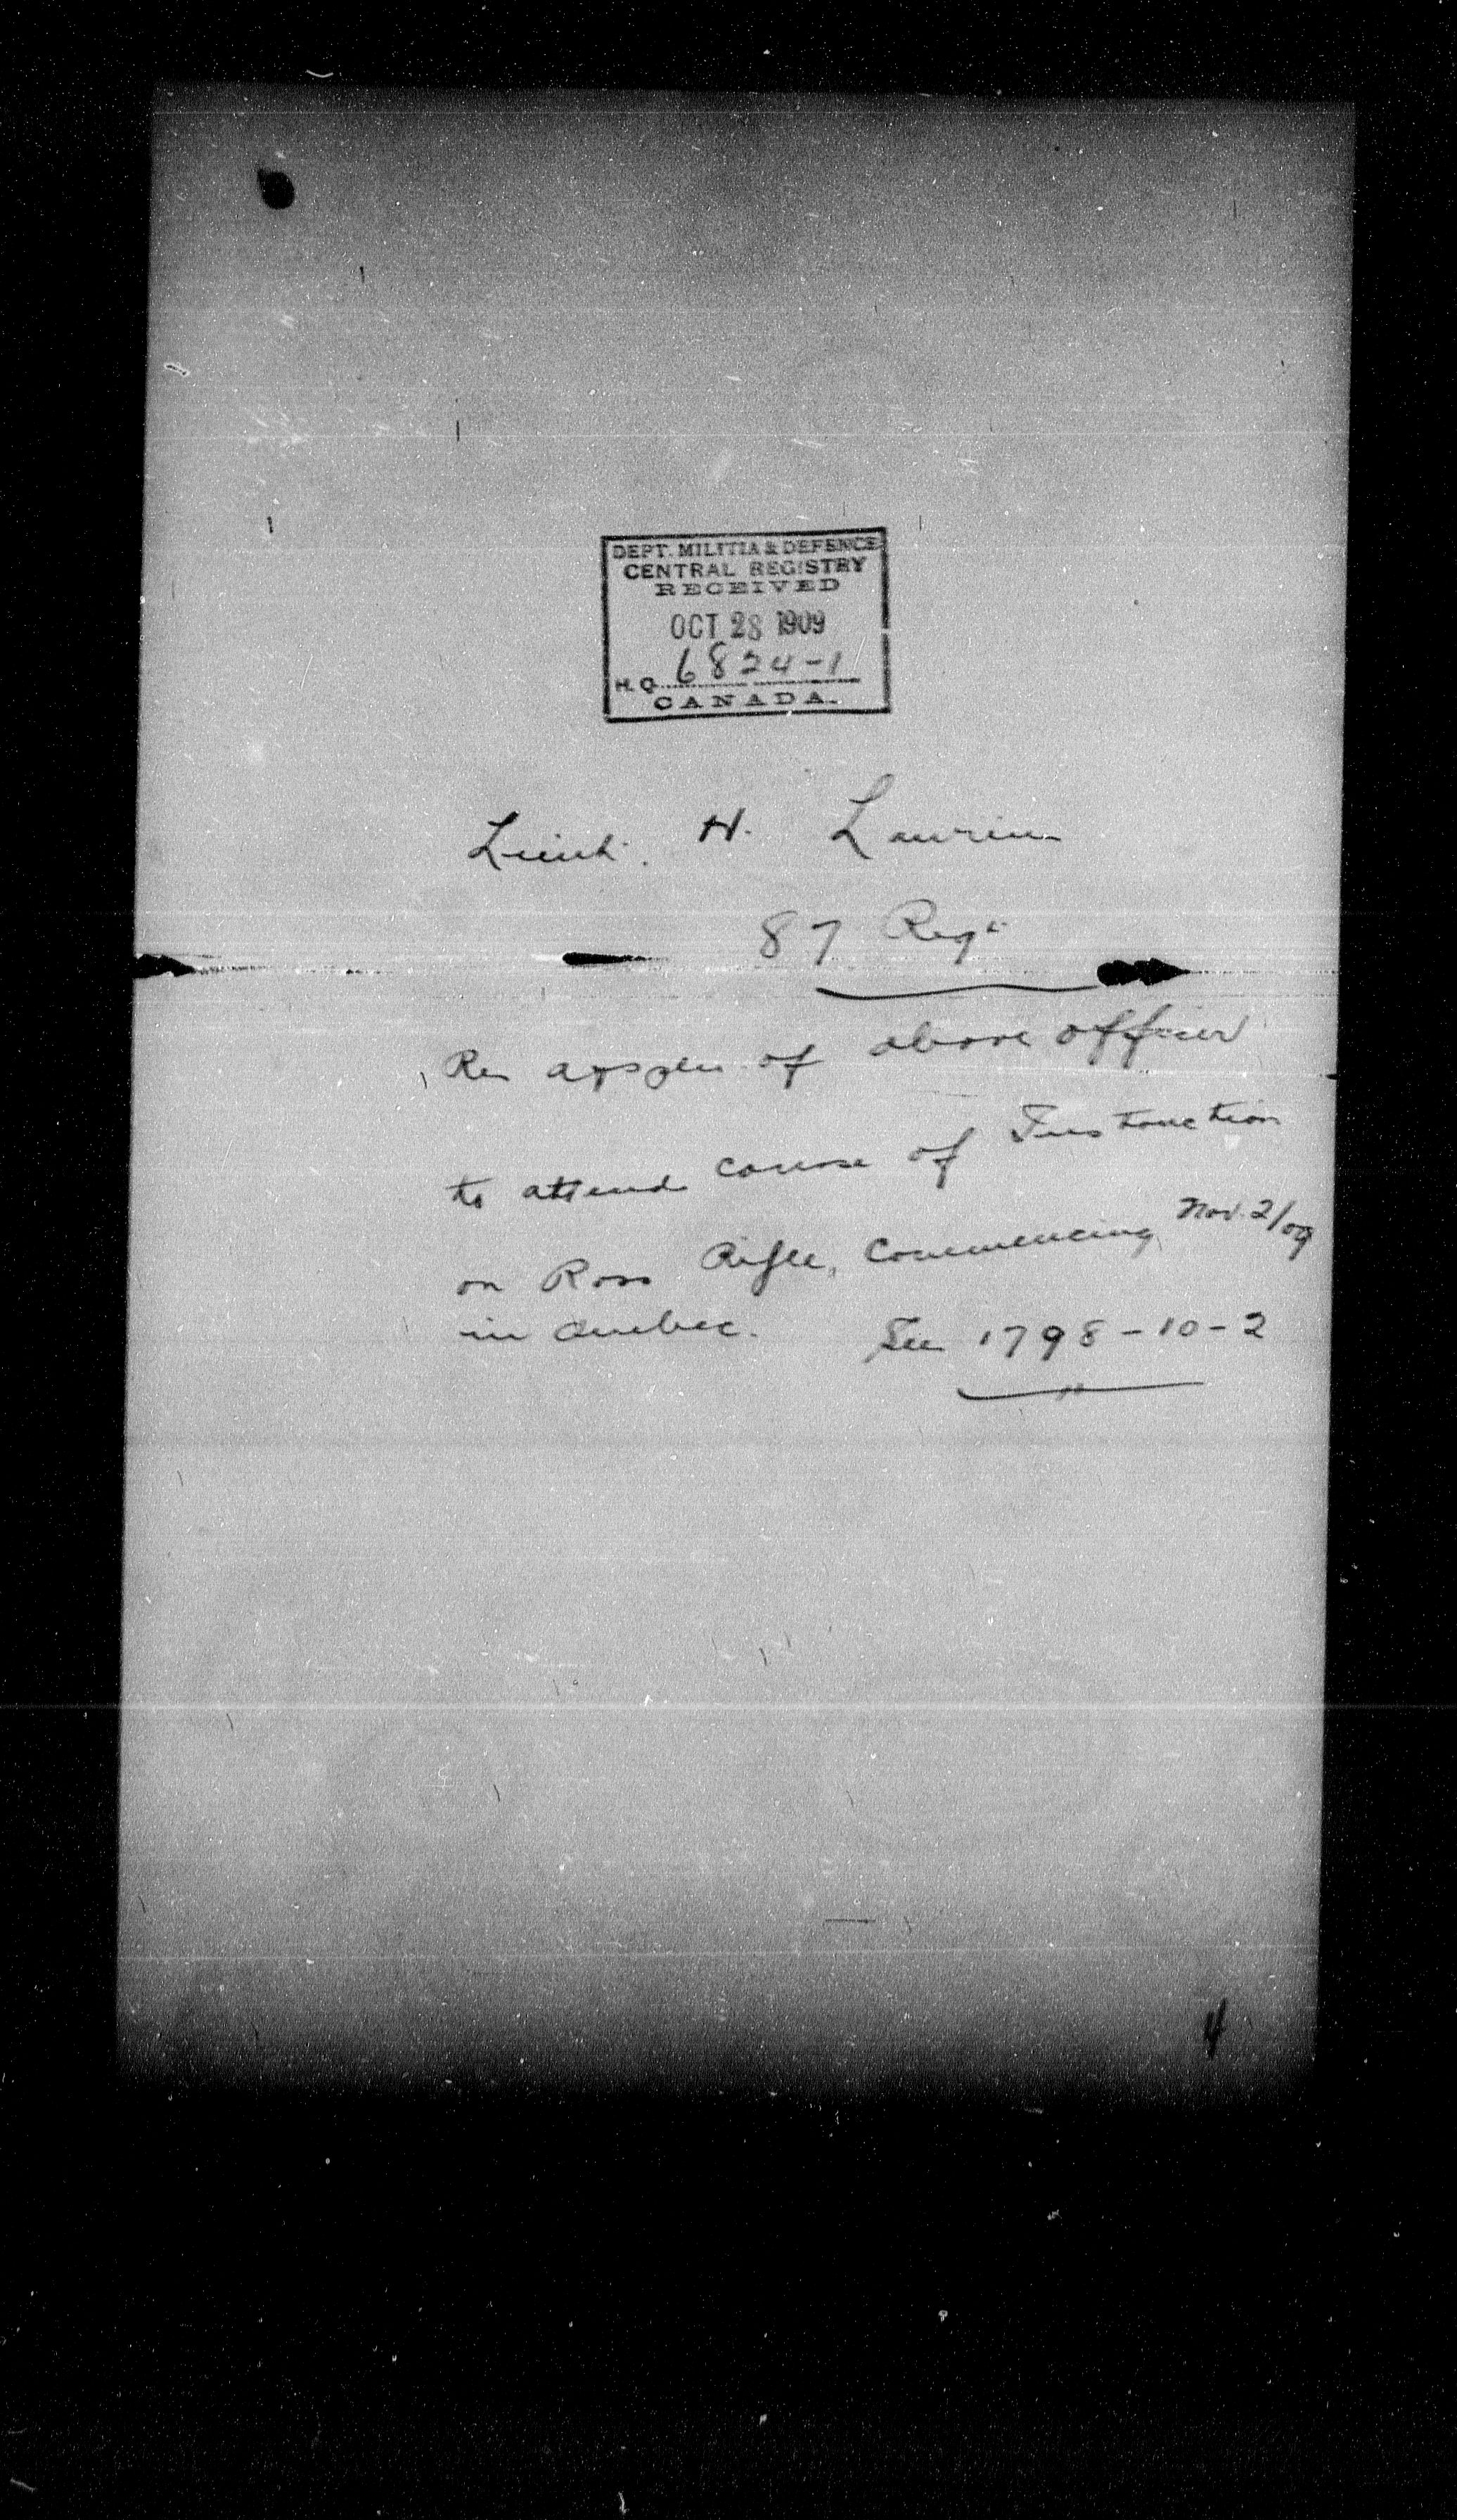 DEPT. MILITIA & DEFENCE
CENTRAL REGISTRY
RECEIVED
OCT 28 1909
H.Q. 6824-1
CANADA.
Lieut. H. Laurin
87 Regt
Re appln of above officer
to attend course of Instruction
on Ross Rifle, Commencing Nov. 2/09
in Quebec. See 1798-10-2
4